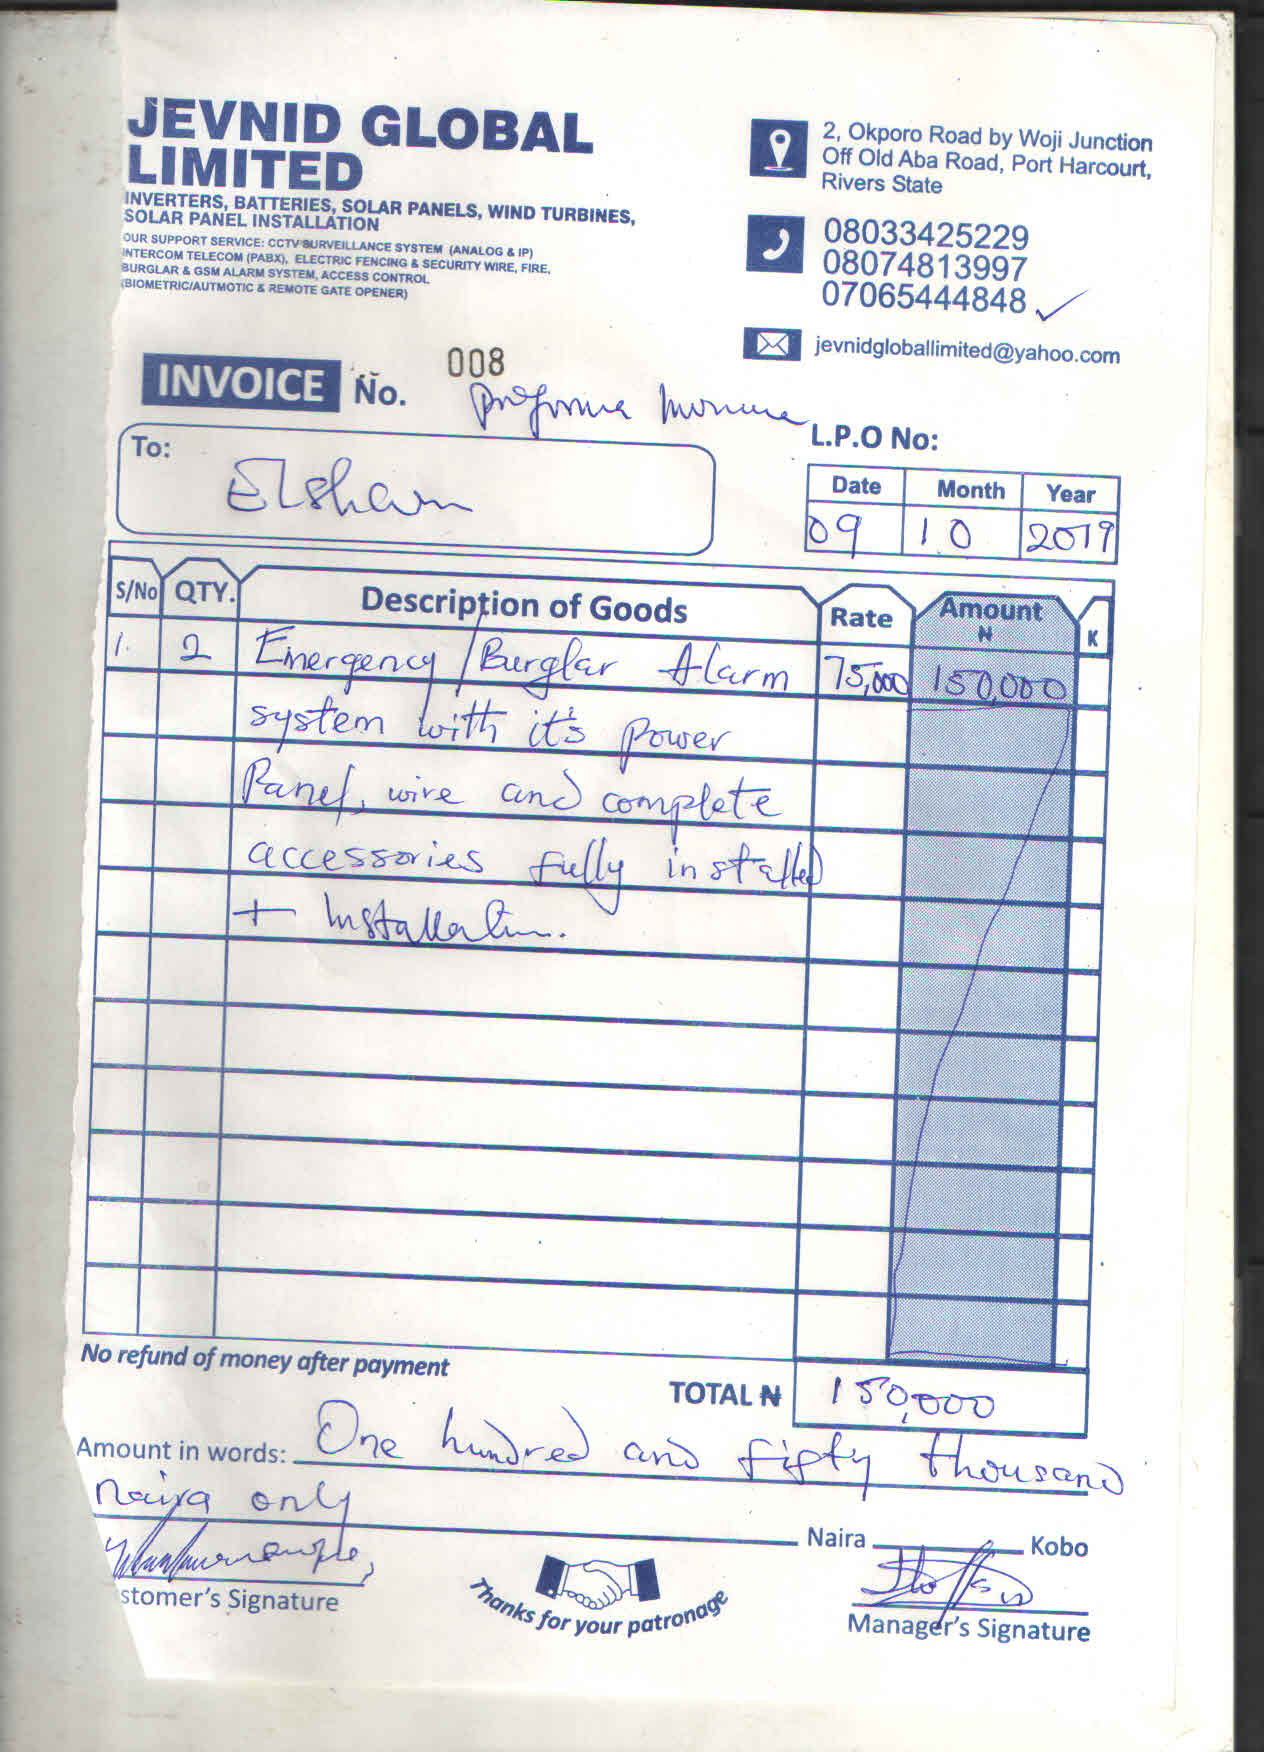 JEVNID GLOBAL
LIMITED
INVERTERS, BATTERIES, SOLAR PANELS, WIND TURBINES,
SOLAR PANEL INSTALLATION
OUR SUPPORT SERVICE: CCTV SURVEILLANCE SYSTEM (ANALOG & IP)
INTERCOM TELECOM (PABX), ELECTRIC FENCING & SECURITY WIRE, FIRE,
BURGLAR & GSM ALARM SYSTEM, ACCESS CONTROL
(BIOMETRIC/AUTMOTIC & REMOTE GATE OPENER)
2, Okporo Road by Woji Junction
Off Old Aba Road, Port Harcourt,
Rivers State
08033425229
08074813997
07065444848
jevnidgloballimited@yahoo.com
INVOICE No. 008
L.P.O No:
To:
Date Month Year
09 10 2019
S/No QTY. Description of Goods Rate Amount ₦ K
1. 2 Emergency/Burglar Alarm 75,000 150,000
system with it's power
Panel, wire and complete
accessories fully installed
+ Installation.
No refund of money after payment
TOTAL ₦ 150,000
Amount in words: One hundred and fifty thousand
naira only
Naira Kobo
stomer's Signature
Thanks for your patronage
Manager's Signature